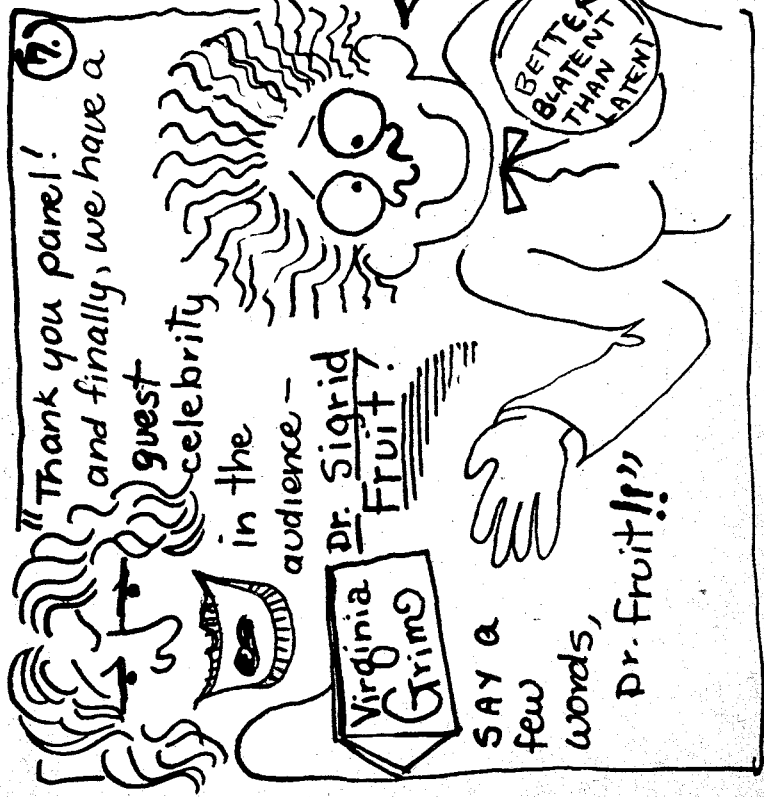 7.
"Thank you panel!
and finally, we have a
guest
celebrity
in the
audience—
Dr. Sigrid
Fruit!
Virginia
Grim
SAY a
few
words,
Dr. Fruit!!"
BETTER
BLATENT
THAN
LATENT